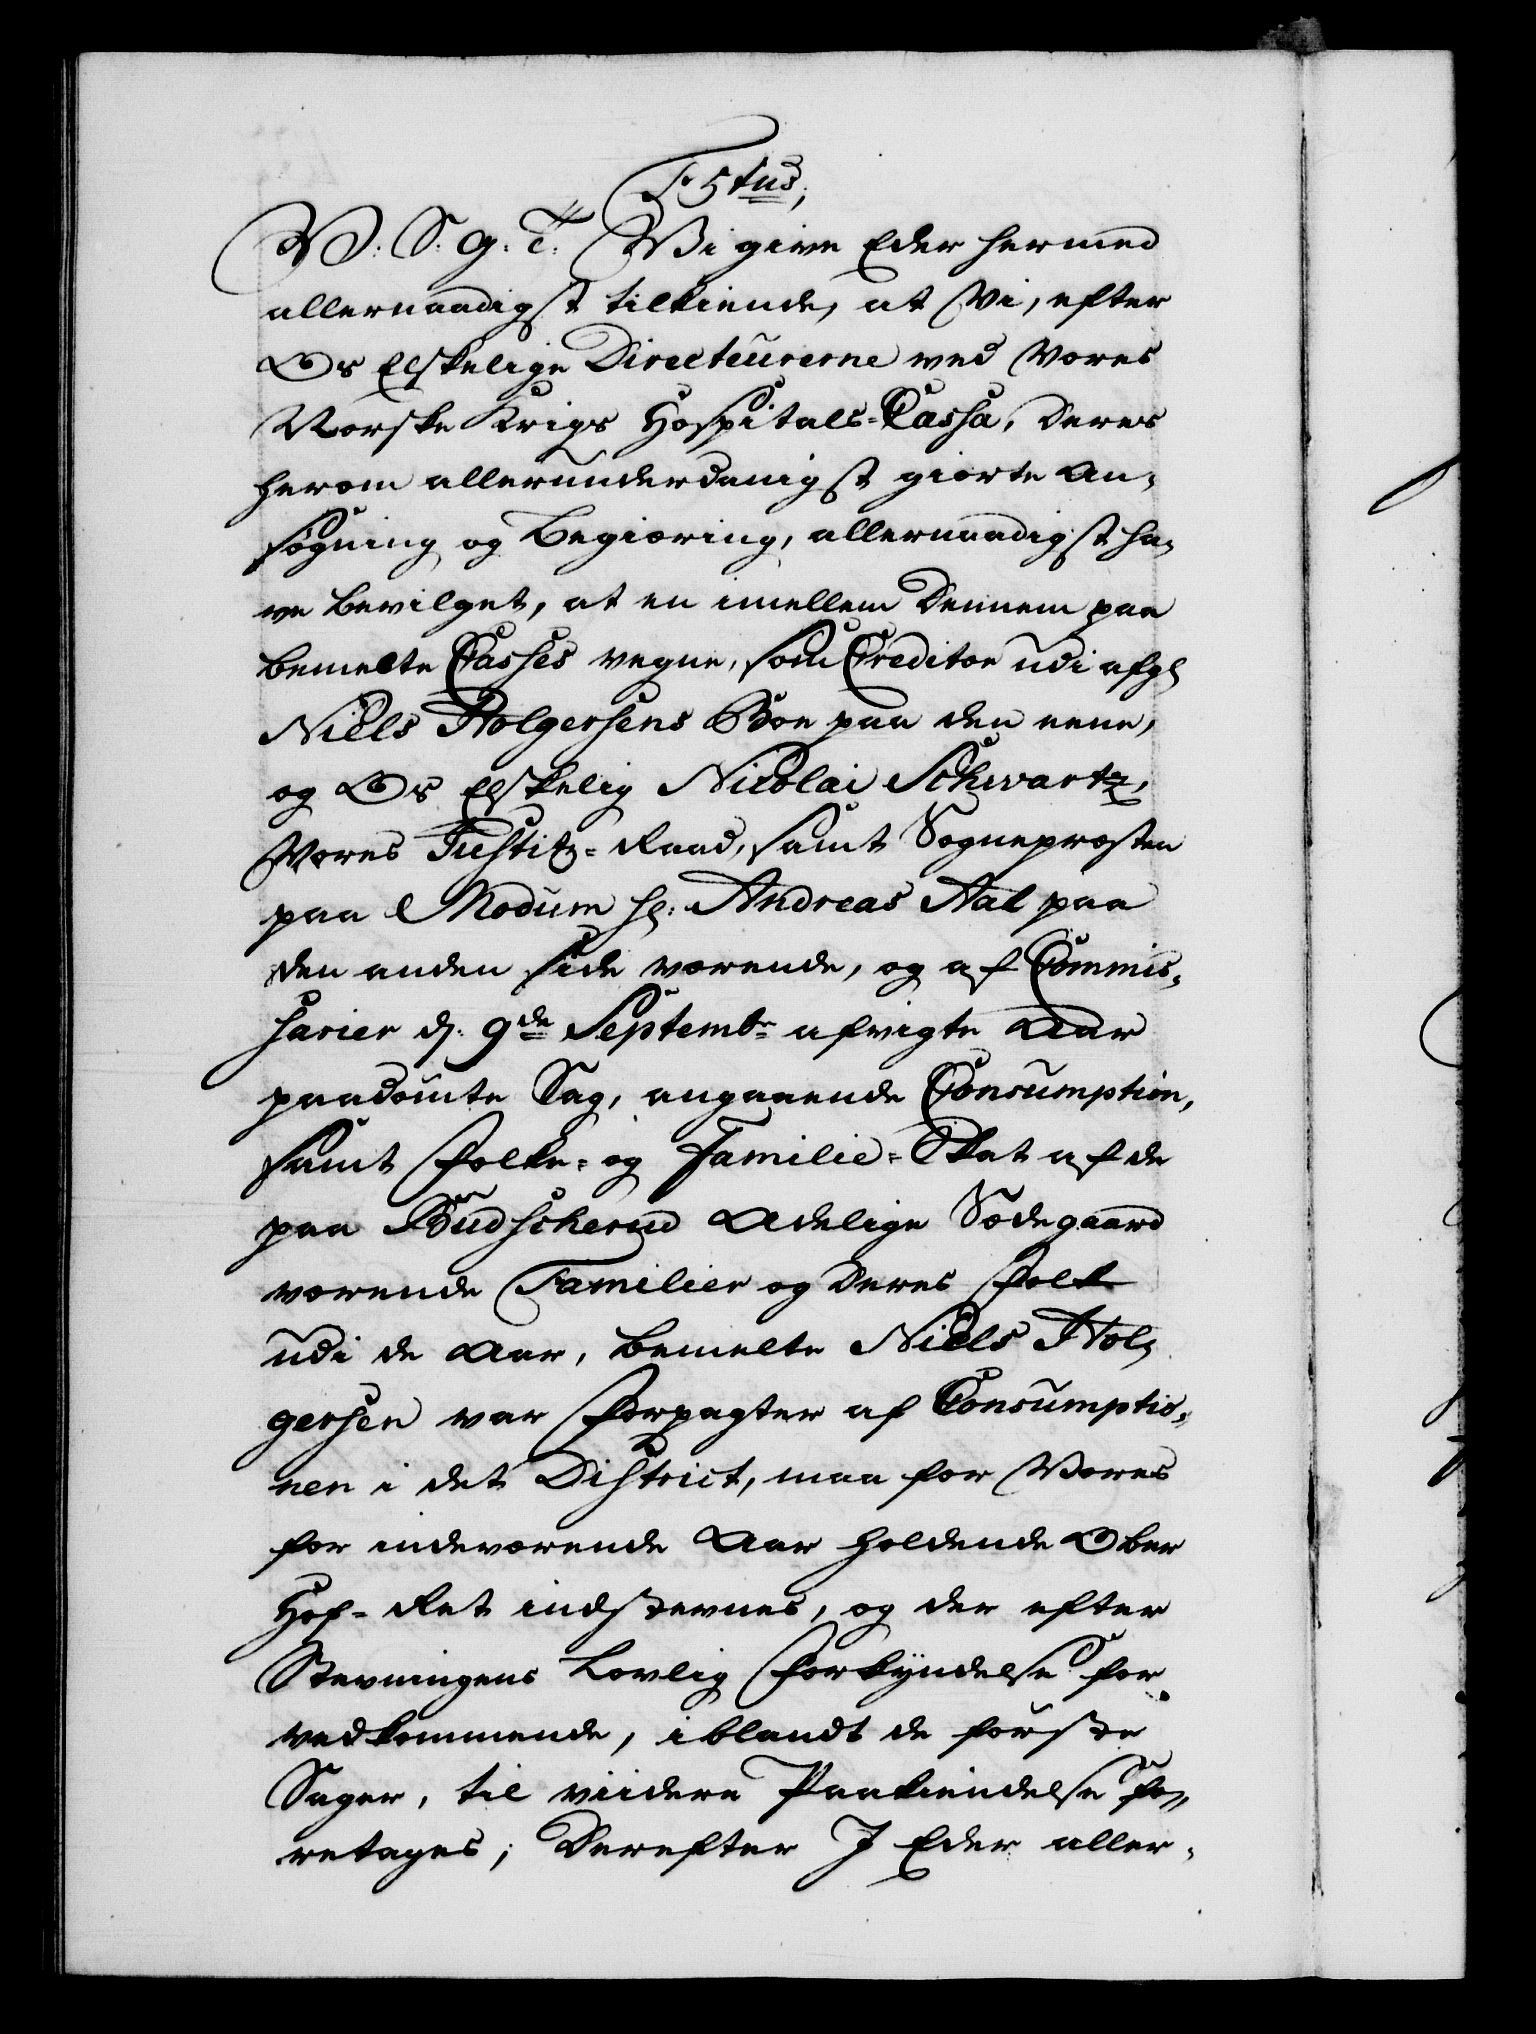 F. 5tus;
W: S: G: T: Wi give Eder hermed
allernaadigst tilkiende, at Wi, efter
Os Elskelige Directeurerne ved Vores
Norske Krigs Hospitals-Cassa, deres
herom allerunderdanigst giorte An-
søgning og Begiering, allernaadigst ha-
ve bevilget, at en imellem Dennem paa
bemelte Casses vegne, som Creditor udi afg:
Niels Holgersens Boe paa den eene,
og Os Elskelig Nicolai Schwartz,
Vores Justitz-Raad, samt Sognepræsten
paa Modum Hr: Andreas Aal paa
den anden side værende, og af Commis-
sarier d: 9de Septembr afvigte Aar
paadømte Sag, angaaende Consumption,
samt Folke- og Familie-Skat af de
paa Budscherud Adelige Sædegaard
værende Familier og deres Folk
udi de Aar, bemelte Niels Hol-
gersen var Forpagter af Consumptio-
nen i det District, maa for Vores
for indeværende Aar holdende Ober
Hof-Ret indstevnes, og der efter
Stevningens Lovlig Forkyndelse for
vedkommende, iblandt de første
Sager, til viidere Paakiendelse fo-
retages; Derefter I Eder aller-